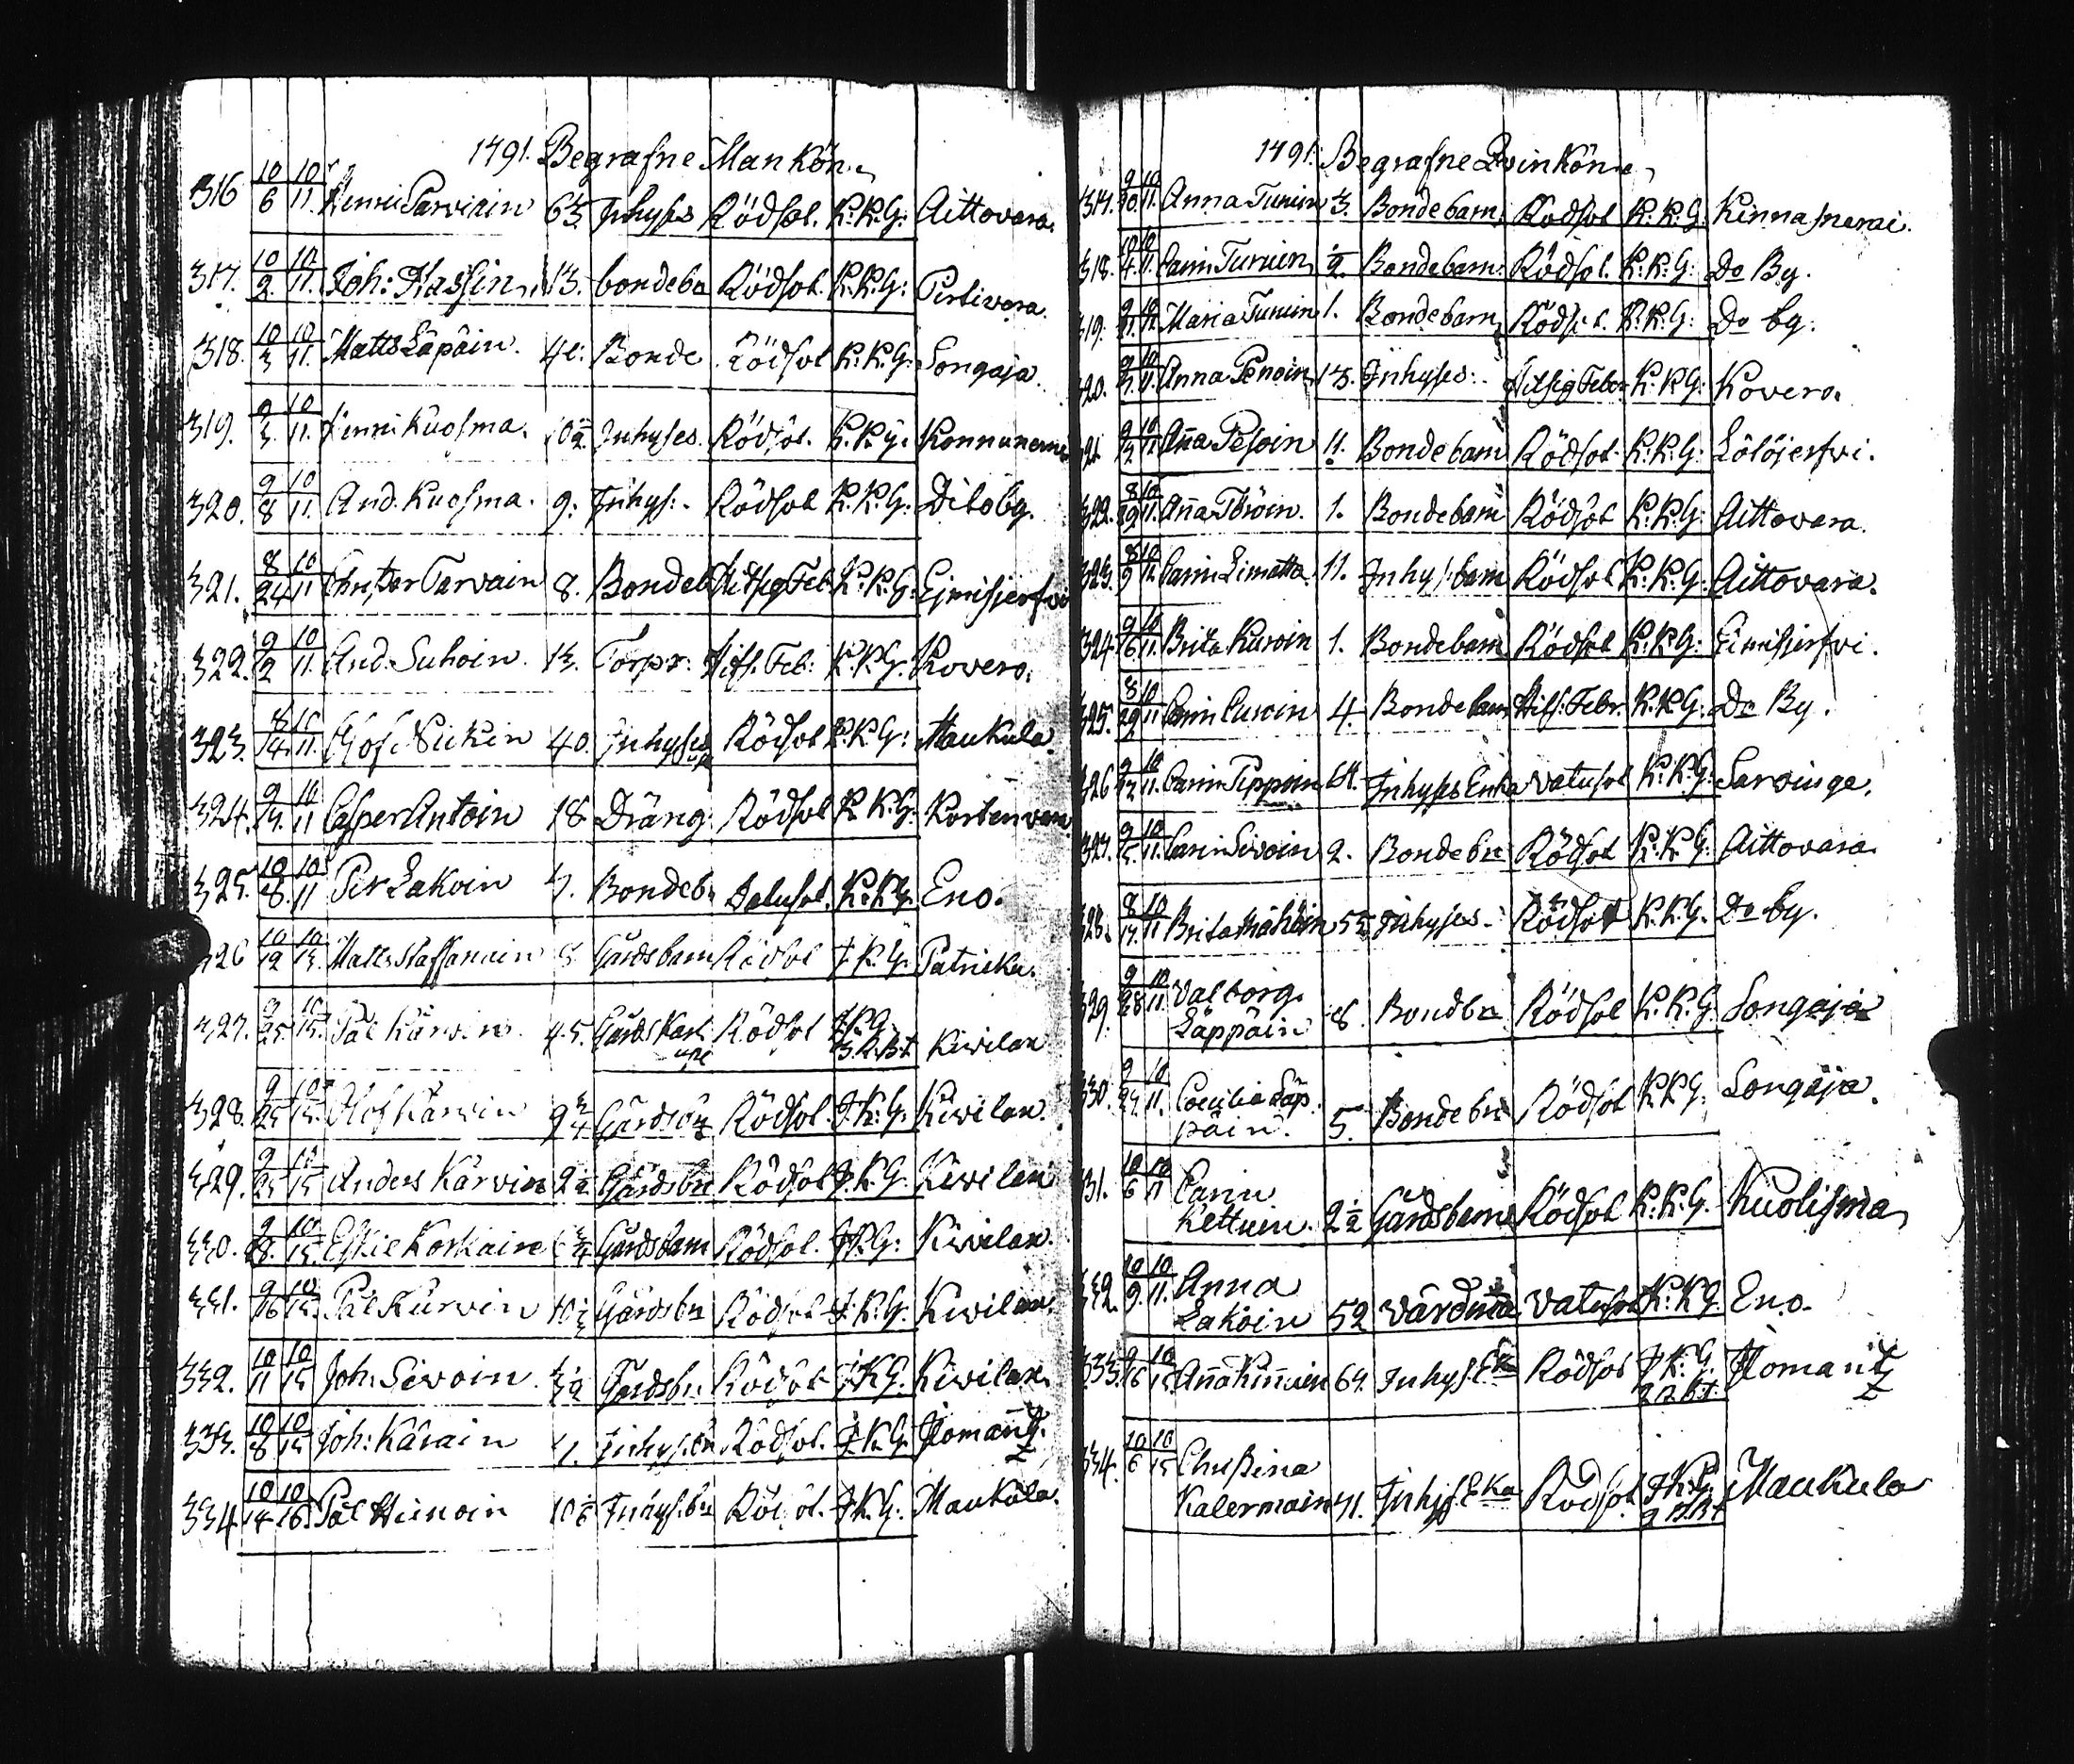 1791. Begrafne Mankön.
316 10/6 10/11 Henric Parviain 63. Inhyses Rödsot. K.K.G: Aittovara.
317. 10/2. 10/11. Joh: Hassin. 13. bondeba Rödsot. K.K.G: Pertivara.
318. 10/3 10/11. Matts Läpäin. Bonde Rödsot K.K.G. Songaja.
319. 9/3. 10/11. Henric Kuosma. Inhyses. Rödsot. K.K.G. Konnunemi
320. 9/8 10/11. And. Kuosma. 9. Inhys:. Rödsot K.K.G: Dito by.
321. 8/24 10/11 Christer Tarvain 8. Bondeb Hitsig Feb. K.K.G: Ejmisjerfvi
322. 9/2 10/11. And. Suhoin. 13. Torpr. Hits. Feb: K.K.G. Kovero.
323. 8/14. 10/11. Olof Nickin 40. Inhyses Rödsot K.K.G: Maukula.
324. 9/19. 10/11 Casper Antoin 18 Dräng: Rödsot K K.G: Kortenvara
325. 10/8. 10/11 Per Lakoin 7. Bondeb. Vatusot. K.K.G. Eno.
326 10/12 10/13. Matts Staffanain 8 Gårdsbarn Rödsot I K.G. Patricka.
327. 9/25. 10/15. Pål Kärvin. 45. Gårds Karl Rödsot I K.G. Kivilax
328. 9/25 10/15. Olof Kärvin 9 3/4 Gårdsön Rödsot. I.K.G. Kivilax.
329. 9/25 10/15 Anders Kärvin 2 1/2 Gårdsbn Rödsot I.K.G. Kivilax
330. 9/28. 10/15. Eskil Korkain Gårdsbarn Rödsot. I K.G. Kivilax.
331. 9/16 10/15. Pål Kärvin Gårdsbn Rödsot I.K.G. Kivilax.
332. 10/11 10/15 Joh: Sivoin. Gårdsbn Rödsot I.K.G. Kivilax.
333. 10/8 10/15 Joh: Kärain 7. Inhys.bn Rödsot. I.K.G. Ilomantz.
334 10/14 10/16. Pål Hiinoin Inhys.bn Rödsot. I.K.G. Maukula.
1791. Begrafne Qvinköne
317. 9/30. 10/11. Anna Turuin 3. Bondebarn Rödsot K.K.G: Kinnasnerai.
318. 10/4. 10/11. Carin Turuin 1/2. Bondebarn: Rödsot. K.K.G: Do By.
319. Maria Turuin 1. Bondebarn Rödsot. K.K.G: Do by.
320. Anna Penoin 13. Inhyses:. Hitsig Feber K.K.G: Kovero.
321. Aña Pesoin 11. Bondebarn Rödsot. K.K.G: Lölöjerfvi.
322. 8/29 10/11. Aña Ikoin. 1. Bondebarn Rödsot K.K.G: Aittovara.
323. Carin Limatta. 11. Inhys.barn Rödsot K.K.G: Aittovara.
324. 9/16 10/11. Brita Kuroin 1. Bondebarn Rödsot K.K.G: Eimisjerfvi.
325. 8/29 10/11 Carin Kuroin 4. Bondebarn Hits. Febr. K.K.G: Do By.
326 Carin Tippoin 64. Inhyses Enka Vatusot K.K.G: Sarvinge.
327. 9/5. 10/11. Carin Sivoin 2. Bondebn Rödsot K.K.G. Aittovara
328. 8/17. 10/11 Brita Mähöin Inhyses. Rödsot K.K.G. Do by.
329. 9/28 10/11. Valborg
Läppäin 8. Bondbn Rödsot K.K.G Songaja
330. 9/27. 10/11. Coecilia Läp
päin. 5. Bondebn Rödsot K.K.G. Songaja.
331. 10/6 10/11 Carin
Kettuin. 2 1/2 Gårdsbarn Rödsot K.K.G. Kuolisma
332. 10/9. 10/11. Anna
Lakoin 52 Värdina Vatusot K.K.G. Eno.
333. 9/16 10/15. Aña Kiñuin 69. Inhys.Eka Rödsot I K.G. Ilomantz
334. 10/6 10/15 Christina
Kalermain 71. Inhys.Eka Rödsot. I K.G. Maukula